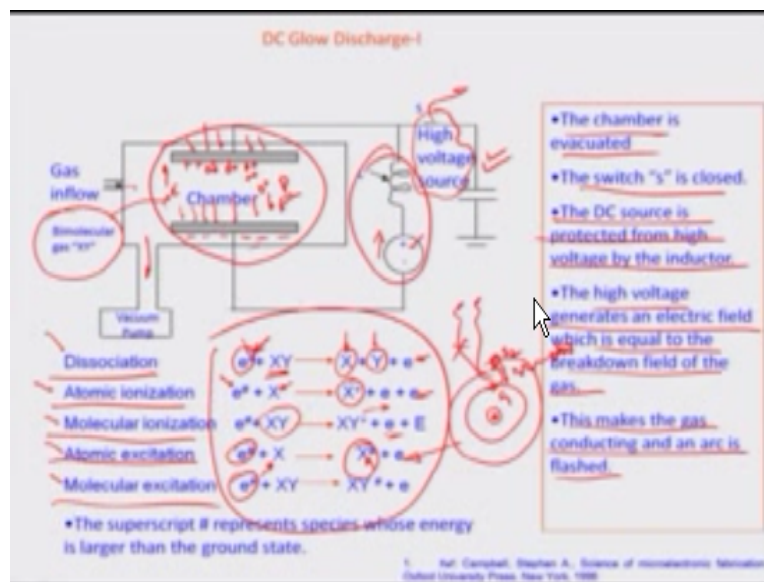 DC Glow Discharge-I
High
voltage
source
Gas
inflow
Chamber
Bimolecular
gas "XY"
Vacuum
Pump
•The chamber is
evacuated
•The switch "s" is closed.
•The DC source is
protected from high
voltage by the inductor.
•The high voltage
generates an electric field
which is equal to the
breakdown field of the
gas.
•This makes the gas
conducting and an arc is
flashed.
Dissociation
e* + XY → X + Y + e
Atomic ionization
e* + X → X⁺ + e + e
Molecular ionization
e* + XY → XY⁺ + e + E
Atomic excitation
e* + X → X# + e
Molecular excitation
e* + XY → XY # + e
•The superscript # represents species whose energy
is larger than the ground state.
1. Ref: Campbell, Stephen A., Science of microelectronic fabrication
Oxford University Press, New York, 1996